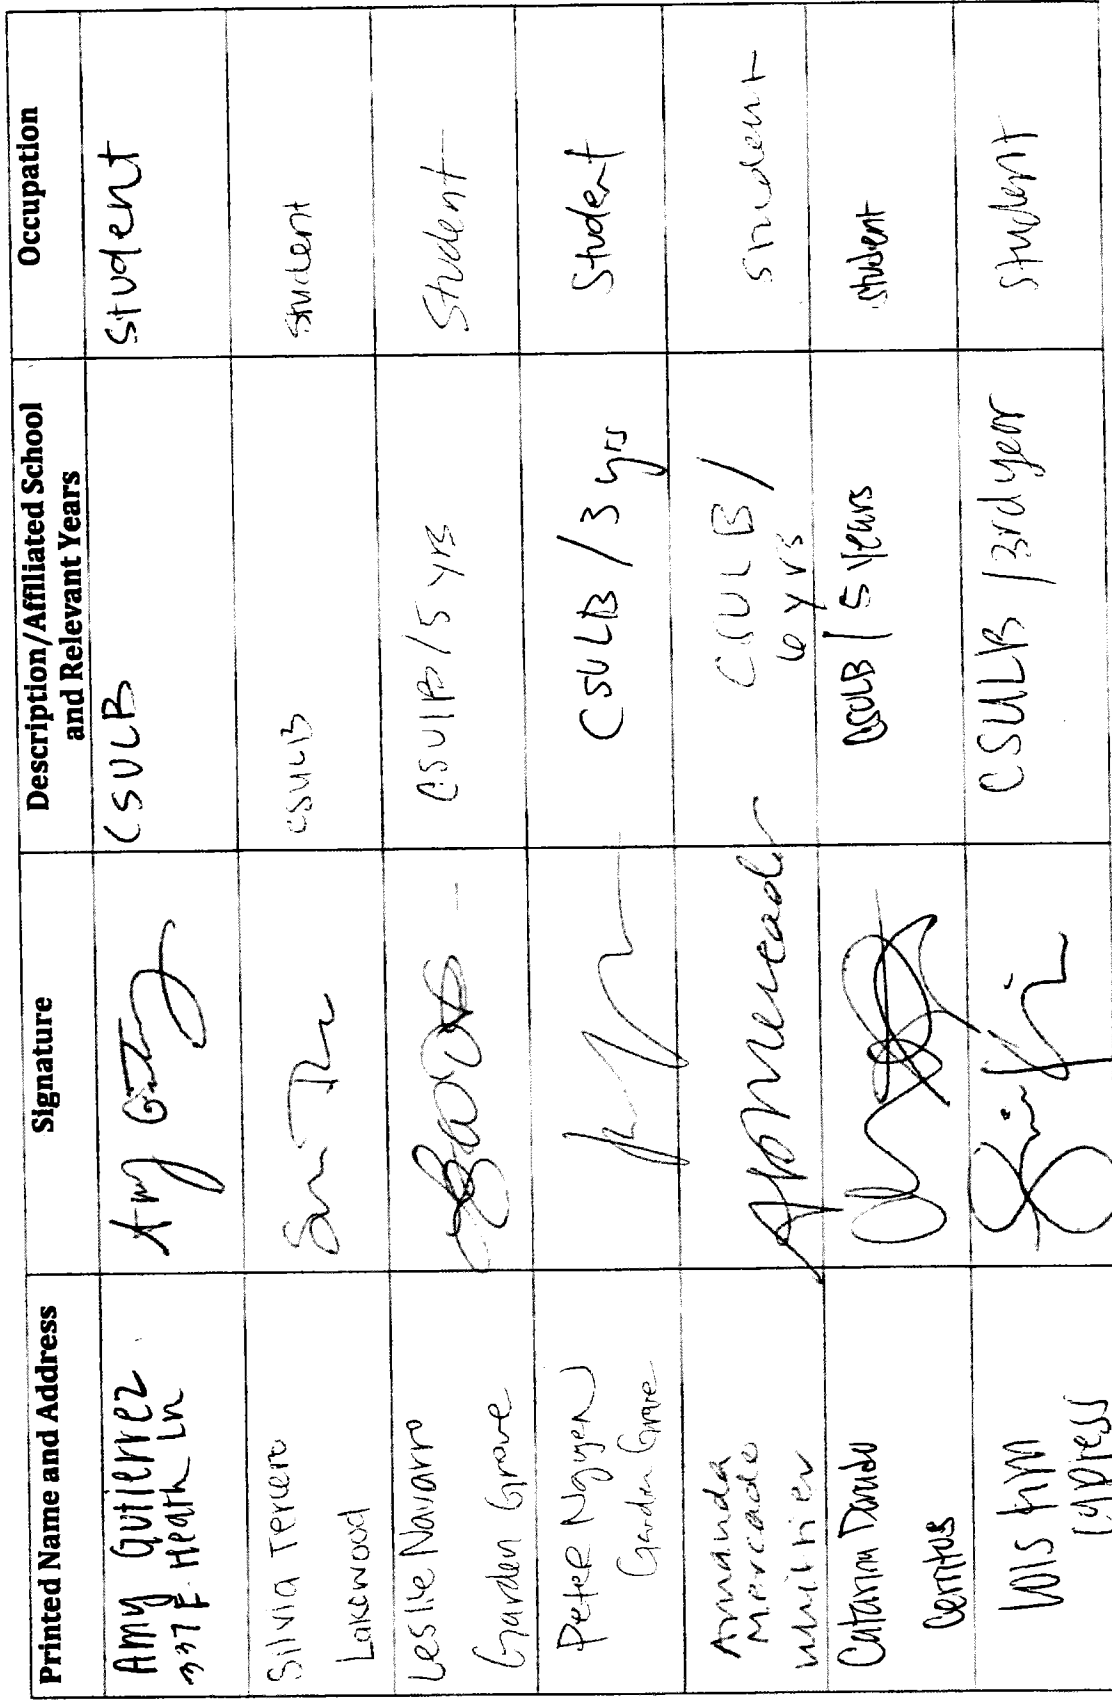 Printed Name and Address
Signature
Description/Affiliated School
and Relevant Years
Occupation
Amy Gutierrez
337 E. Heath Ln
Amy
CSULB
Student
Silvia Tercero
Lakewood
CSULB
Student
Leslie Navarro
Garden Grove
CSULB/5 yrs
Student
Peter Nguyen
Garden Grove
CSULB / 3 yrs
Student
Amanda
Mercado
Whittier
CSULB /
6 yrs
student
Catarina
Cerritos
CSULB / 5 years
student
Cypress
CSULB / 3rd year
student